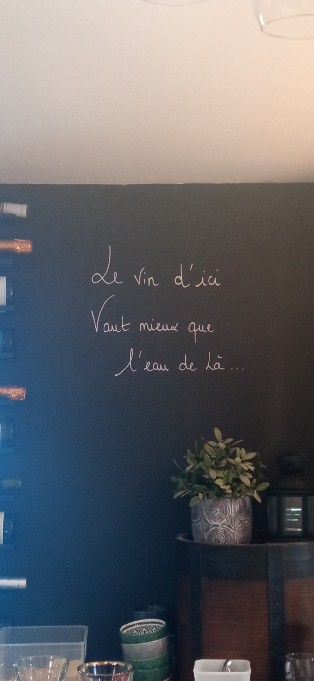 Le vin d'ici
Vaut mieux que
l'eau de Là...